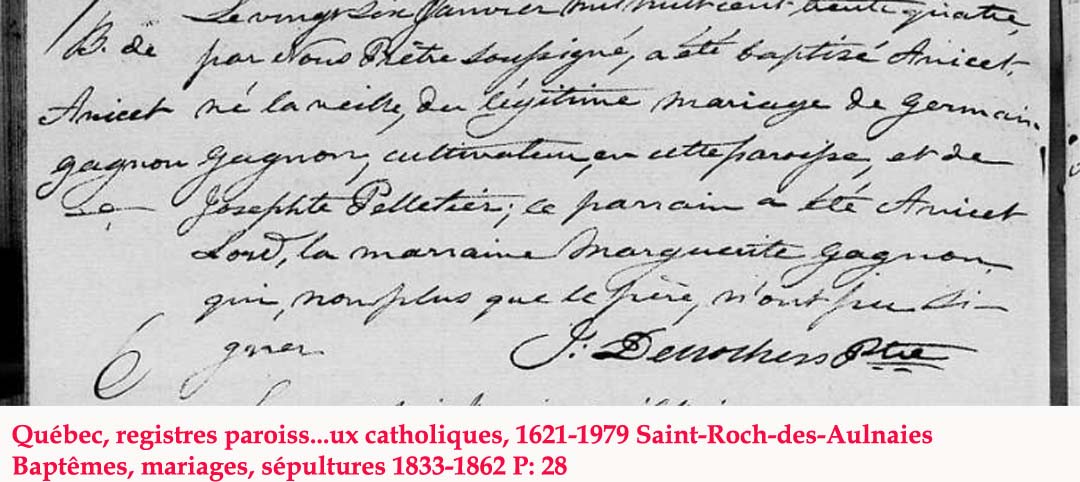 Le vingt six Janvier mil huit cent trente quatre,
B. de par Nous Prêtre soussigné, a été baptisé Anicet,
Anicet né la veille, du légitime mariage de Germain
gagnon Gagnon, cultivateur, en cette paroisse, et de
Josephte Pelletier; ce parrain a été Anicet
Lord, la marraine Marguerite Gagnon,
qui, non plus que le père, n'ont pu si-
gner J: Desrochers Ptre
6
Québec, registres paroiss...ux catholiques, 1621-1979 Saint-Roch-des-Aulnaies
Baptêmes, mariages, sépultures 1833-1862 P: 28